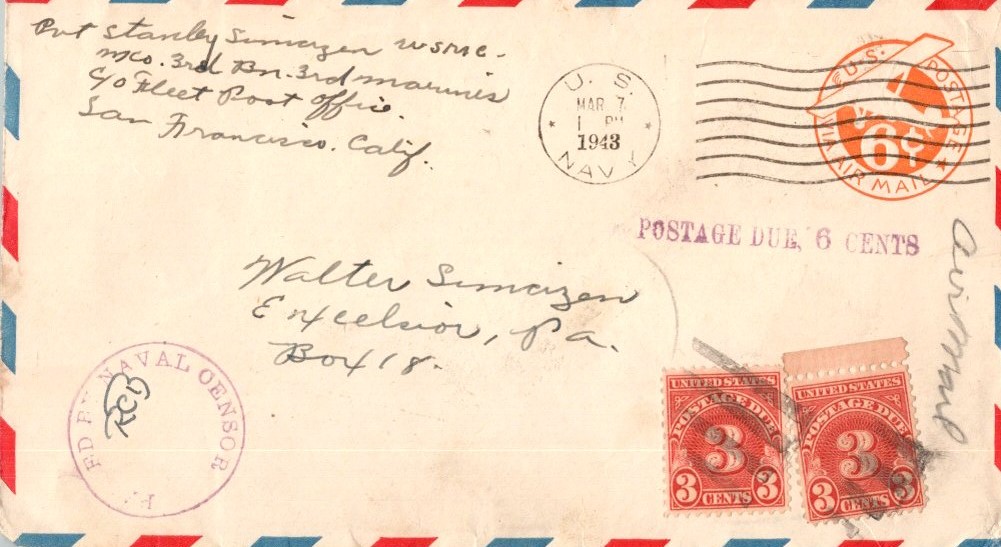 Pvt Stanley Simaizen USMC.
M Co. 3rd Bn. 3rd Marines
C/o Fleet Post Office.
San Francisco. Calif.
U. S.
MAR 7
1 PM
1943
NAVY
U.S. POSTAGE
6¢
VIA AIR MAIL
POSTAGE DUE, 6 CENTS
Air Mail
Walter Simaizen
Excelsior, Pa.
Box 18.
ED BY NAVAL CENSOR
UNITED STATES
POSTAGE DUE
3
3 CENTS 3
UNITED STATES
POSTAGE DUE
3
3 CENTS 3